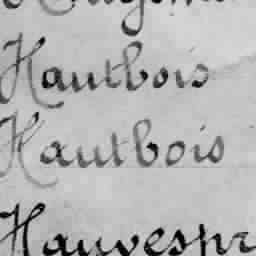 Hautbois
Hautbois
Hauvespr